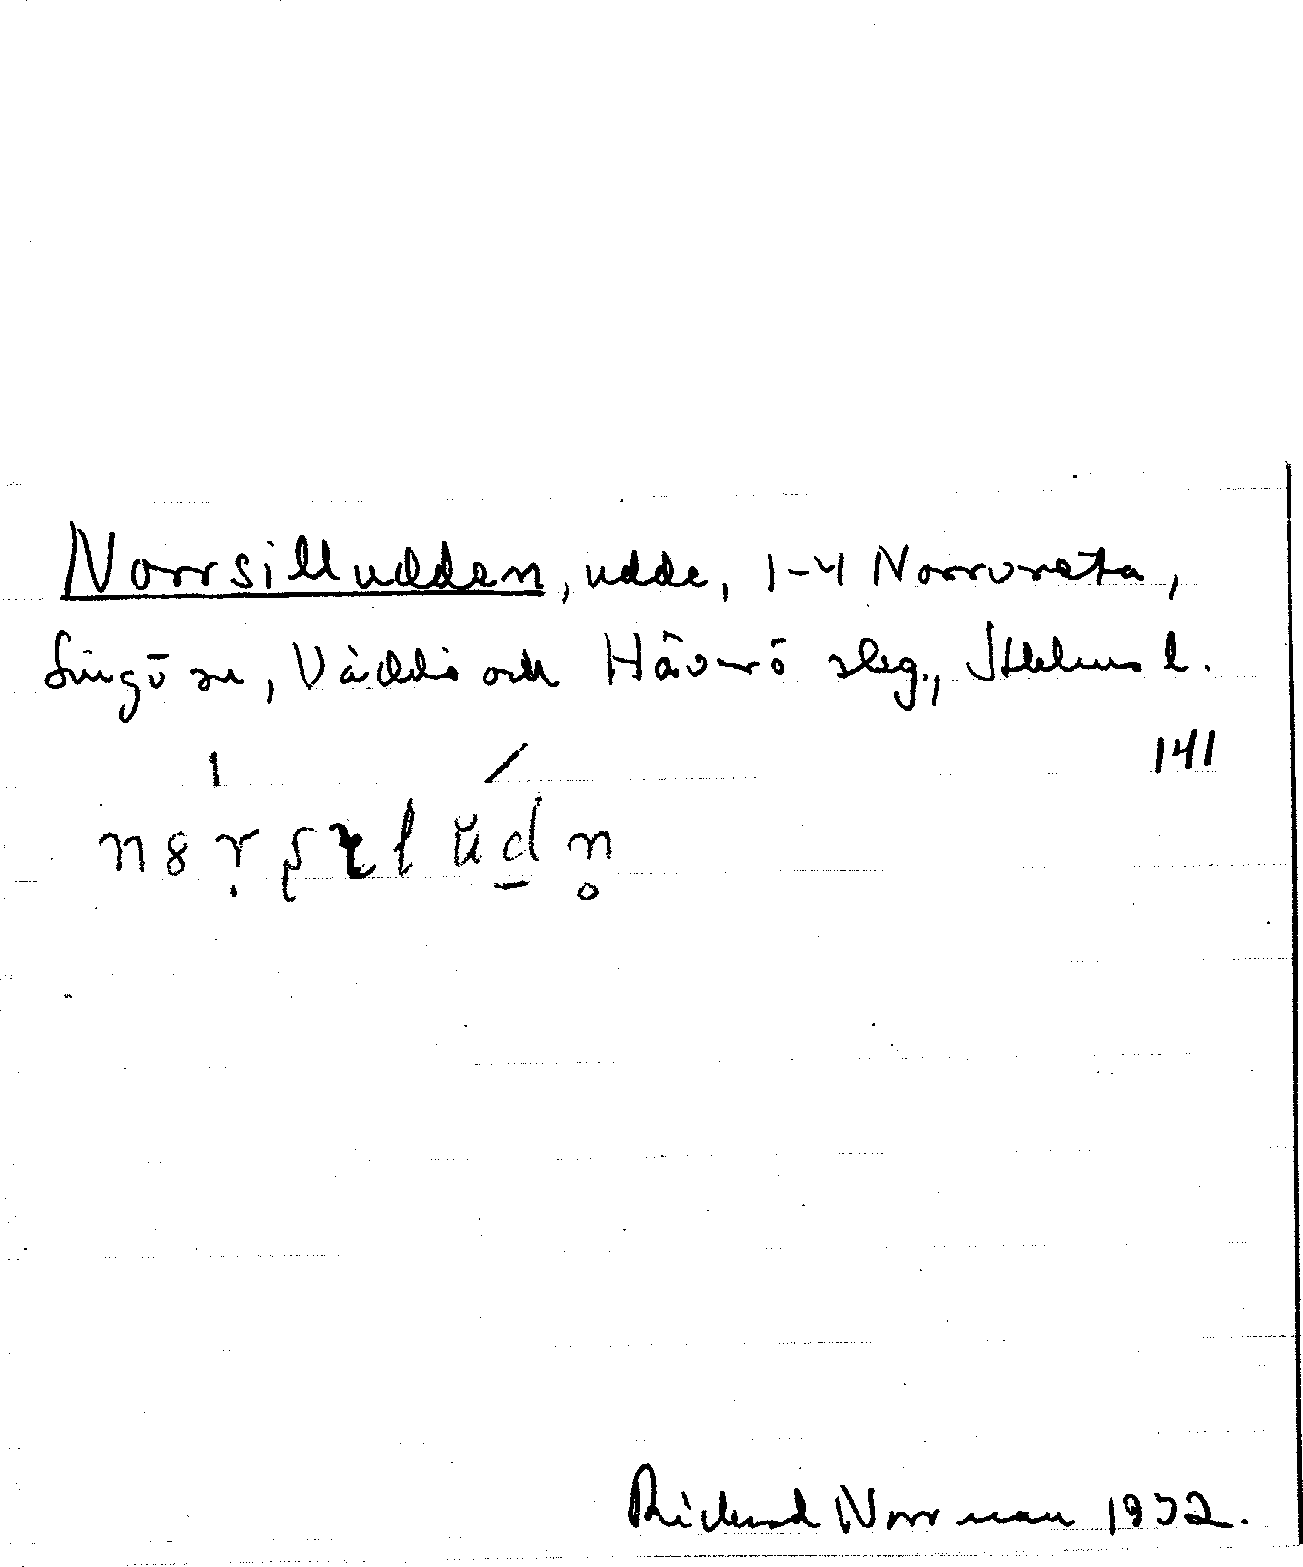 Norrsilludden, udde, 1-4 Norrvreta,
Singö sn, Väddö och Häverö skg., Sthlms l.
141
Richard Norrman 1932.